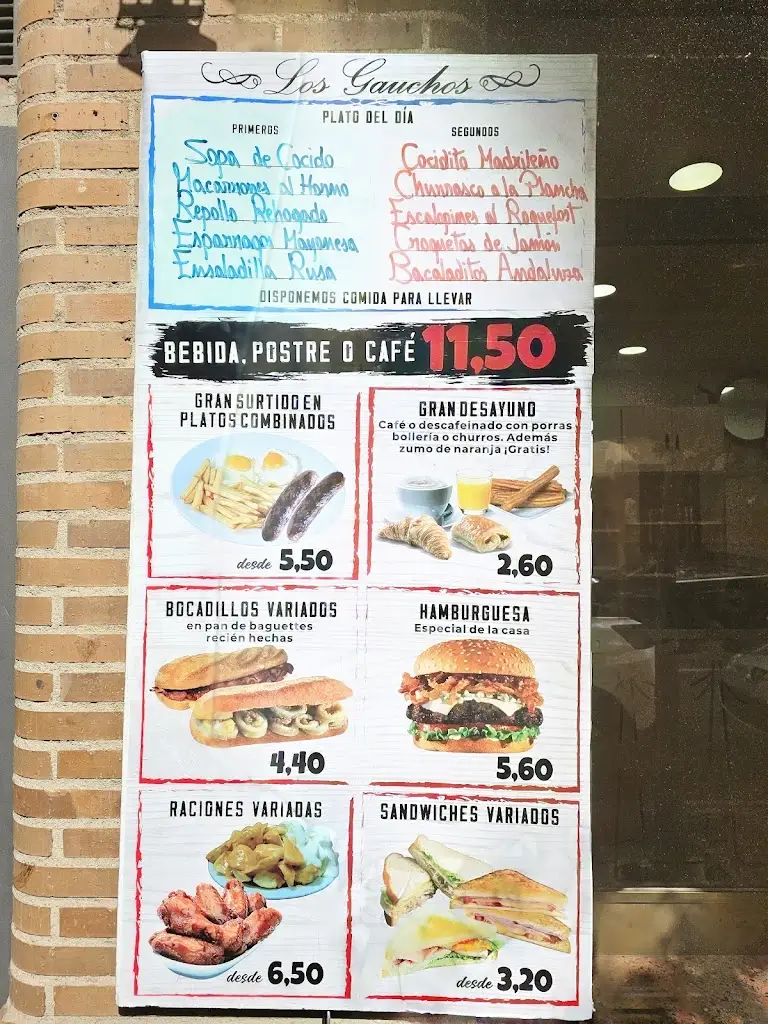 Los Gauchos
PLATO DEL DÍA
PRIMEROS
Sopa de Cocido
Macarrones al Horno
Repollo Rehogado
Esparragos Mayonesa
Ensaladilla Rusa
SEGUNDOS
Cocidito Madrileño
Churrasco a la Plancha
Escalopines al Roquefort
Croquetas de Jamón
Bacaladitos Andaluza
DISPONEMOS COMIDA PARA LLEVAR
BEBIDA, POSTRE O CAFÉ 11,50
GRAN SURTIDO EN
PLATOS COMBINADOS
desde 5,50
GRAN DESAYUNO
Café o descafeinado con porras
bollería o churros. Además
zumo de naranja ¡Gratis!
2,60
BOCADILLOS VARIADOS
en pan de baguettes
recién hechas
4,40
HAMBURGUESA
Especial de la casa
5,60
RACIONES VARIADAS
desde 6,50
SANDWICHES VARIADOS
desde 3,20